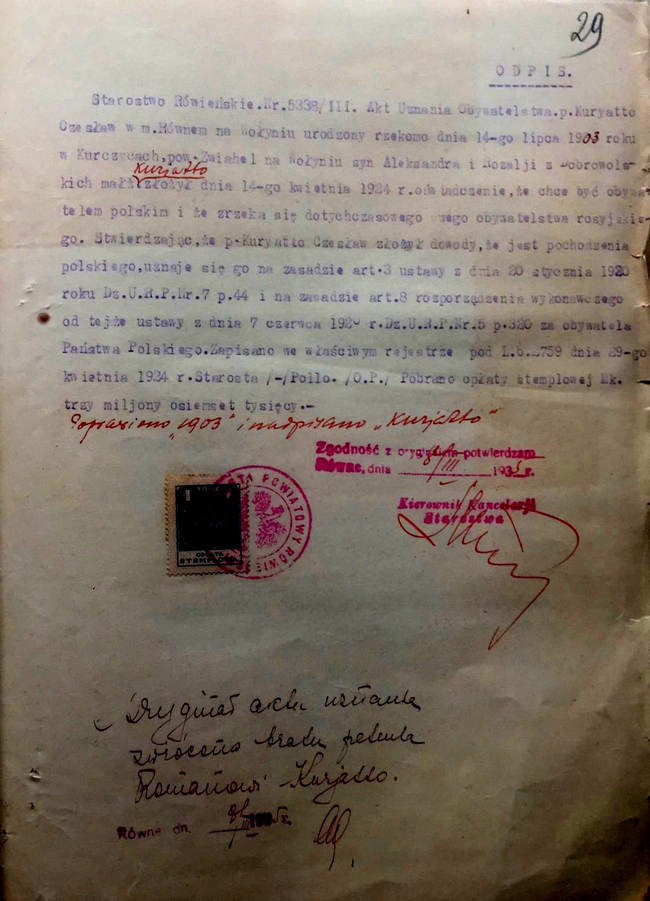 29
ODPIS.
Starostwo Rówieńskie.Nr.5338/III. Akt Uznania Obywatelstwa.p.Kuryatto
Czesław w m.Równem na Wołyniu urodzony rzekomo dnia 14-go lipca 1903 roku
w Kurczycach,pow.Zwiahel na Wołyniu syn Aleksandra i Rozalji z Dobrowols-
Kurjatto
kich małż.złożył dnia 14-go kwietnia 1924 r.oświadczenie,że chce być obywa-
telem polskim i że zrzeka się dotychczasowego swego obywatelstwa rosyjskie-
go. Stwierdzając,że p.Kuryatto Czesław złożył dowody,że jest pochodzenia
polskiego,uznaje się go na zasadzie art.3 ustawy z dnia 20 stycznia 1920
roku Dz.U.R.P.Nr.7 p.44 i na zasadzie art.8 rozporządzenia wykonawczego
od tejże ustawy z dnia 7 czerwca 1920 r.Dz.U.R.P.Nr.5 p.320 za obywatela
Państwa Polskiego.Zapisano we właściwym rejestrze pod L.b.2759 dnia 29-go
kwietnia 1924 r.Starosta /-/Pollo. /O.P./ Pobrano opłaty stemplowej Mk.
trzy miljony osiemset tysięcy.-
Poprawiono "1903" i nadpisano "Kurjatto"
Zgodność z oryginałem potwierdzam
Równe, dnia 8/III 1935 r.
Kierownik Kancelarji
Starostwa
STA POWIATOWY RÓWIE
OPŁATA
STEMPLOWA
Oryginał aktu uznania
zwrócono bratu petenta
Romanowi Kurjatto.
Równe dn. 8/III 1935 r.